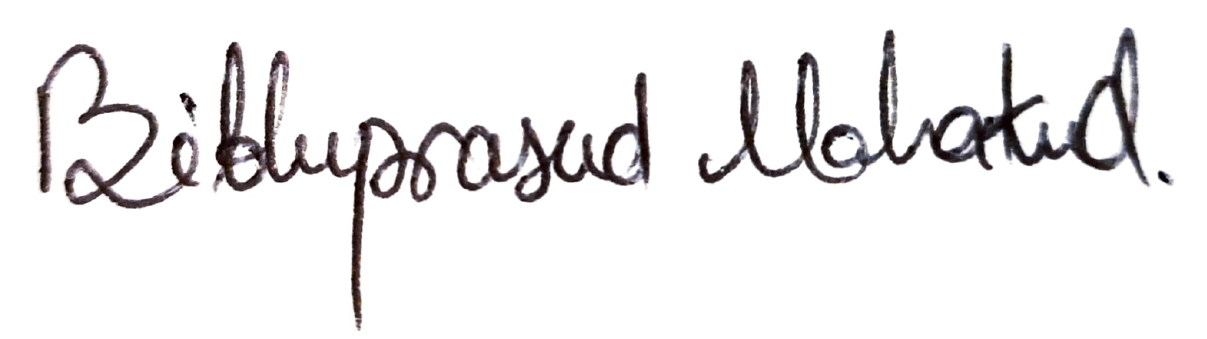 Bibhuprasad Mahatud.